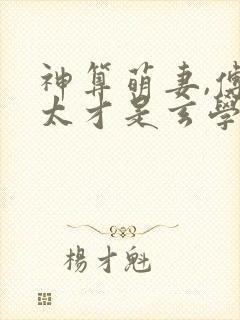 神算萌妻,傅
太才是玄學
楊才魁